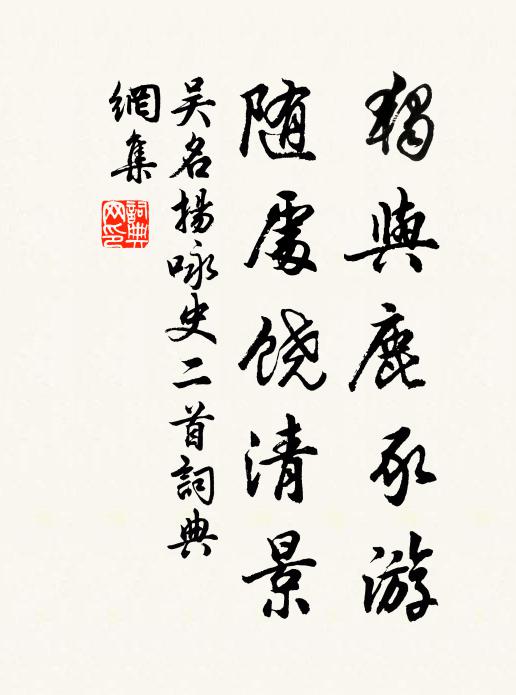 獨與鹿豕游
随處饶清景
吴名揚咏史二首詞典
網集
詞典網印